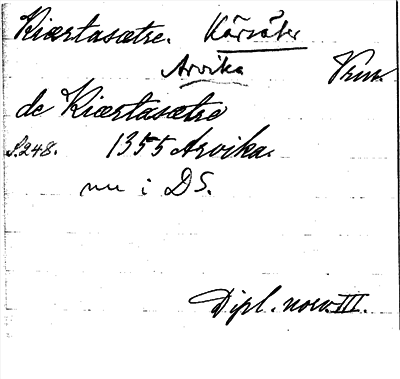 Kiærtasætre. Kärsäter
Arvika Vrm.
de Kiærtasætre
S.248. 1355 Arvika.
nu i DS.
Dipl. norv. III.